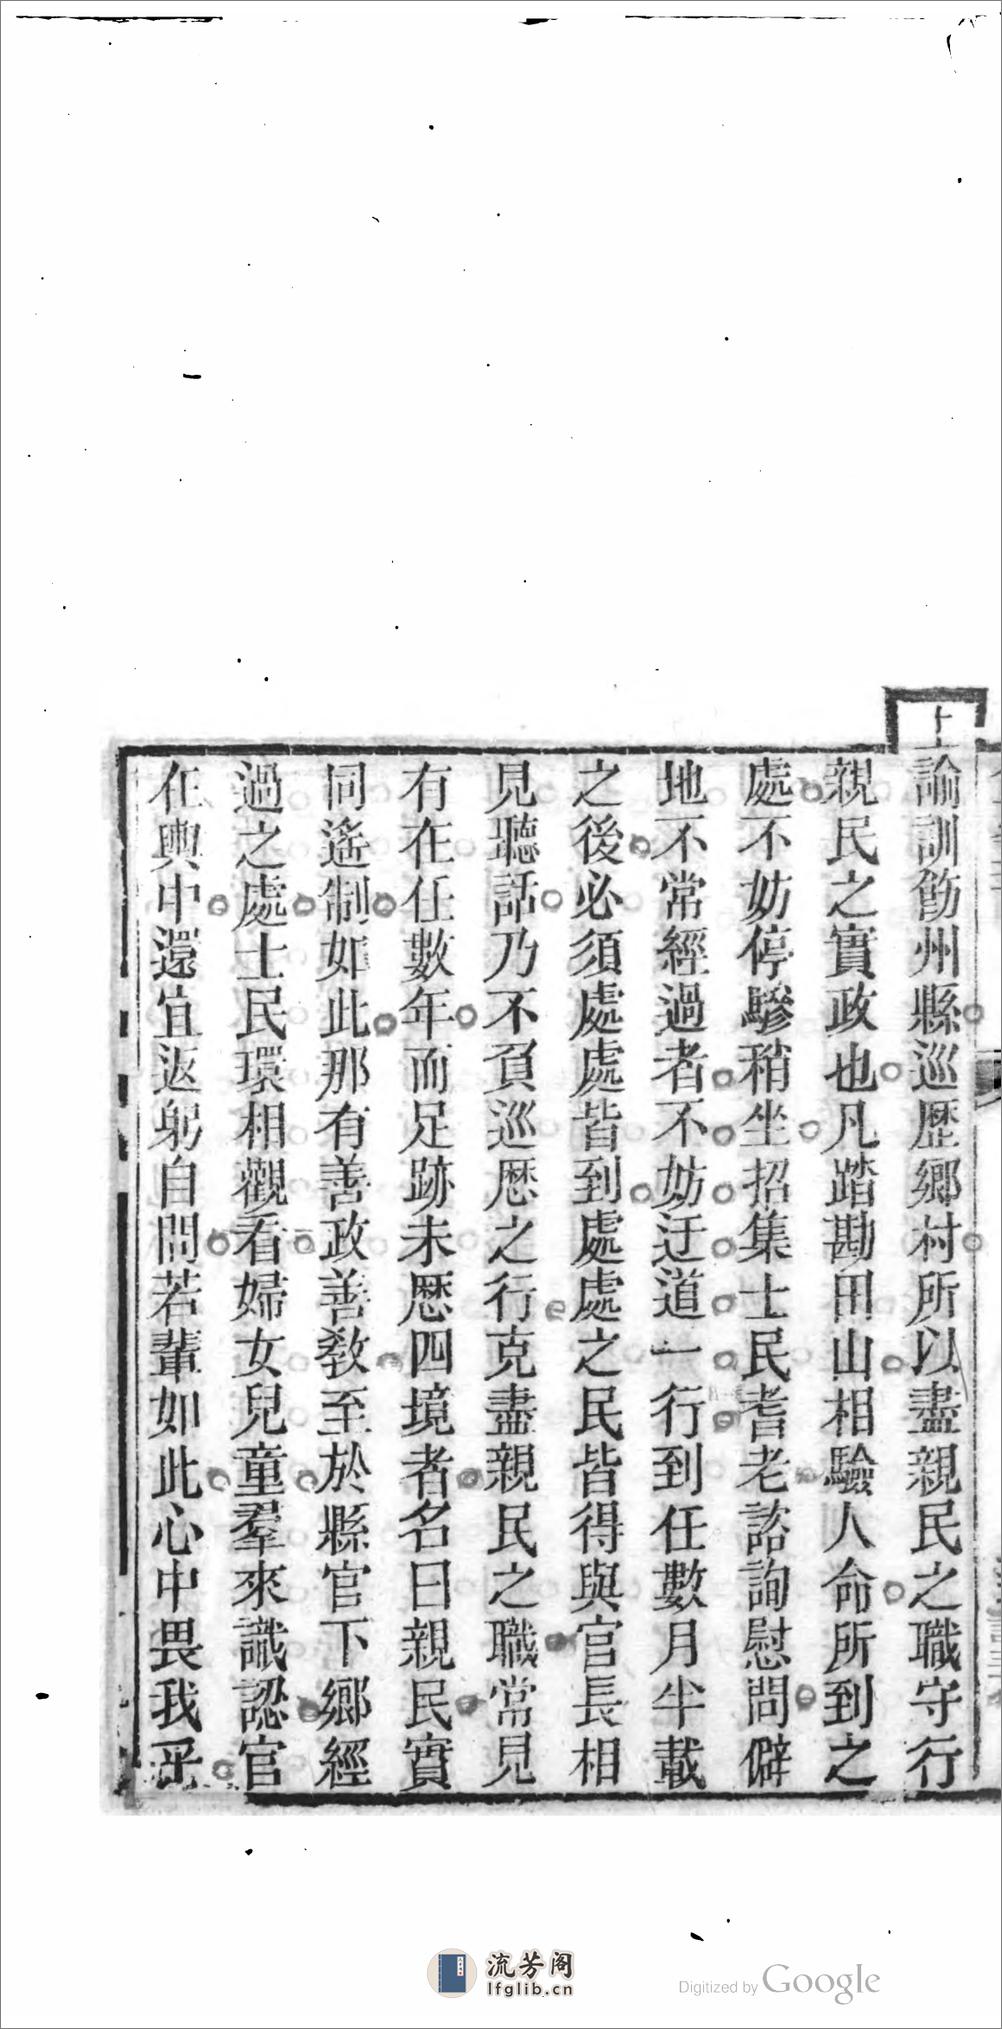 上諭訓飭州縣巡歷鄉村所以盡親民之職守行
親民之實政也凡踏勘田山相驗人命所到之
處不妨停驂稍坐招集士民耆老諮詢慰問僻
地不常經過者不妨迂道一行到任數月半載
之後必須處處皆到處處之民皆得與官長相
見聽話乃不負巡歷之行克盡親民之職常見
有在任數年而足跡未歷四境者名曰親民實
同遙制如此那有善政善教至於縣官下鄉經
過之處士民環相觀看婦女兒童羣來識認官
在輿中還宜返躬自問若輩如此心中畏我乎
流芳阁
lfglib.cn
Digitized by Google